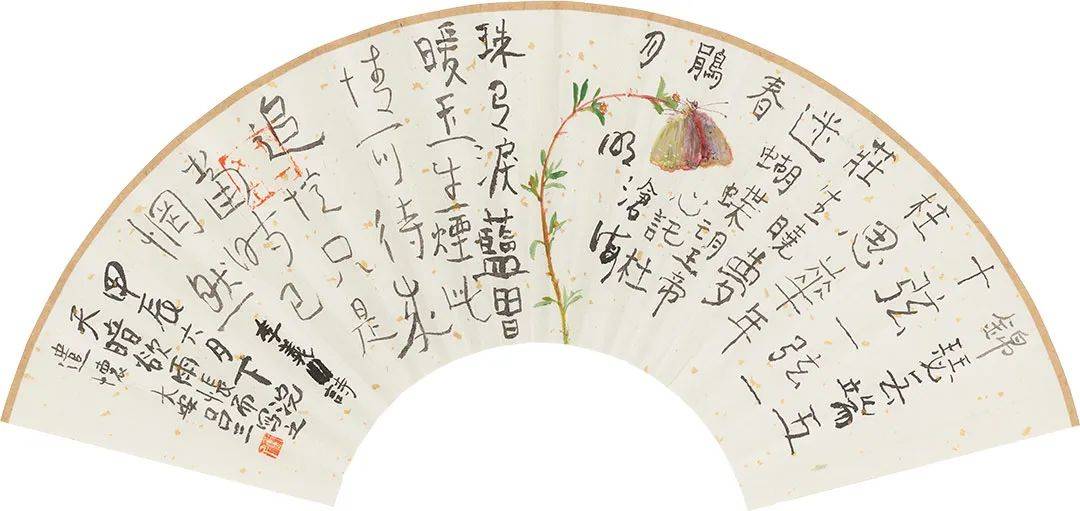 錦瑟无端五
十弦一弦一
柱思華年
莊生曉夢
迷蝴蝶望帝
春心託杜
鵑滄海
月明
珠有淚藍田日
暖玉生煙此
情可待成
追憶只是
當時已
惘然
李義山詩
甲辰六月下浣
天暗欲雨而寫之
大呂三